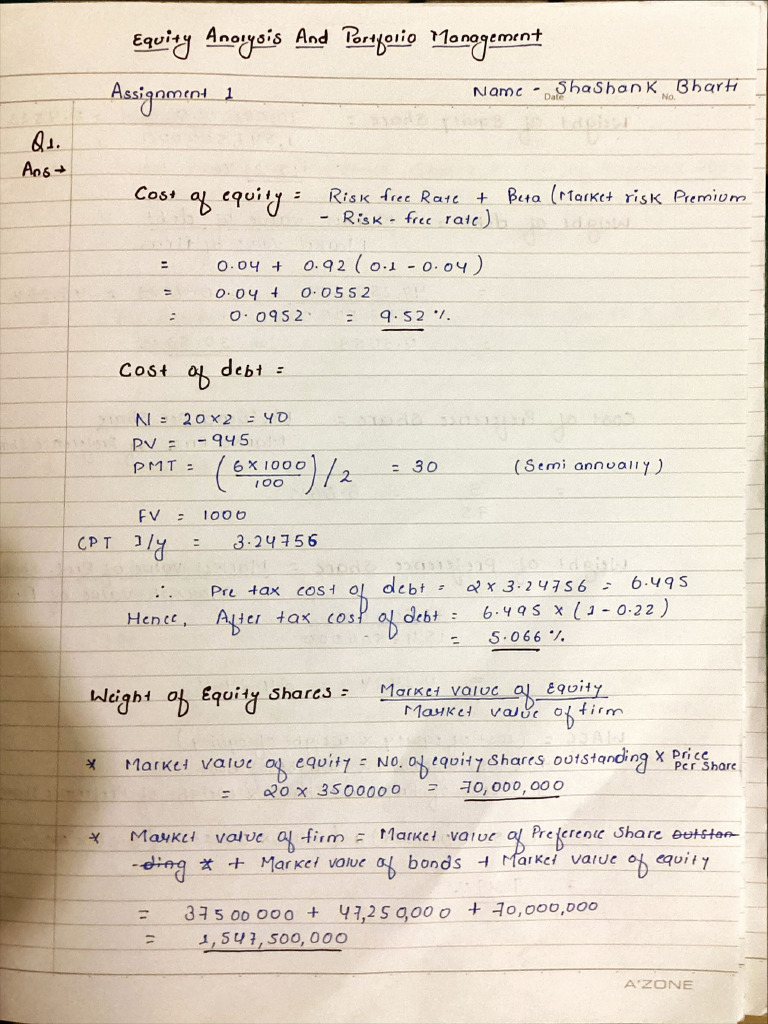 Equity Analysis And Portfolio Management
Assignment 1 Name - Shashank Bharti
Date No.
Q1.
Ans →
Cost of equity = Risk free Rate + Beta (Market risk Premium
- Risk - free rate)
= 0.04 + 0.92 (0.1 - 0.04)
= 0.04 + 0.0552
= 0.0952 = 9.52 %
Cost of debt =
N = 20 x 2 = 40
PV = -945
PMT = (6 x 1000 / 100) / 2 = 30 (Semi annually)
FV = 1000
CPT I/y = 3.24756
∴ Pre tax cost of debt = 2 x 3.24756 = 6.495
Hence, After tax cost of debt = 6.495 x (1 - 0.22)
= 5.066 %
Weight of Equity shares = Market value of Equity / Market value of firm
* Market value of equity = No. of equity shares outstanding x Price Per Share
= 20 x 3500000 = 70,000,000
* Market value of firm = Market value of Preference Share outstan-
-ding * + Market value of bonds + Market value of equity
= 37500000 + 47,250,000 + 70,000,000
= 1,547,500,000
A'ZONE